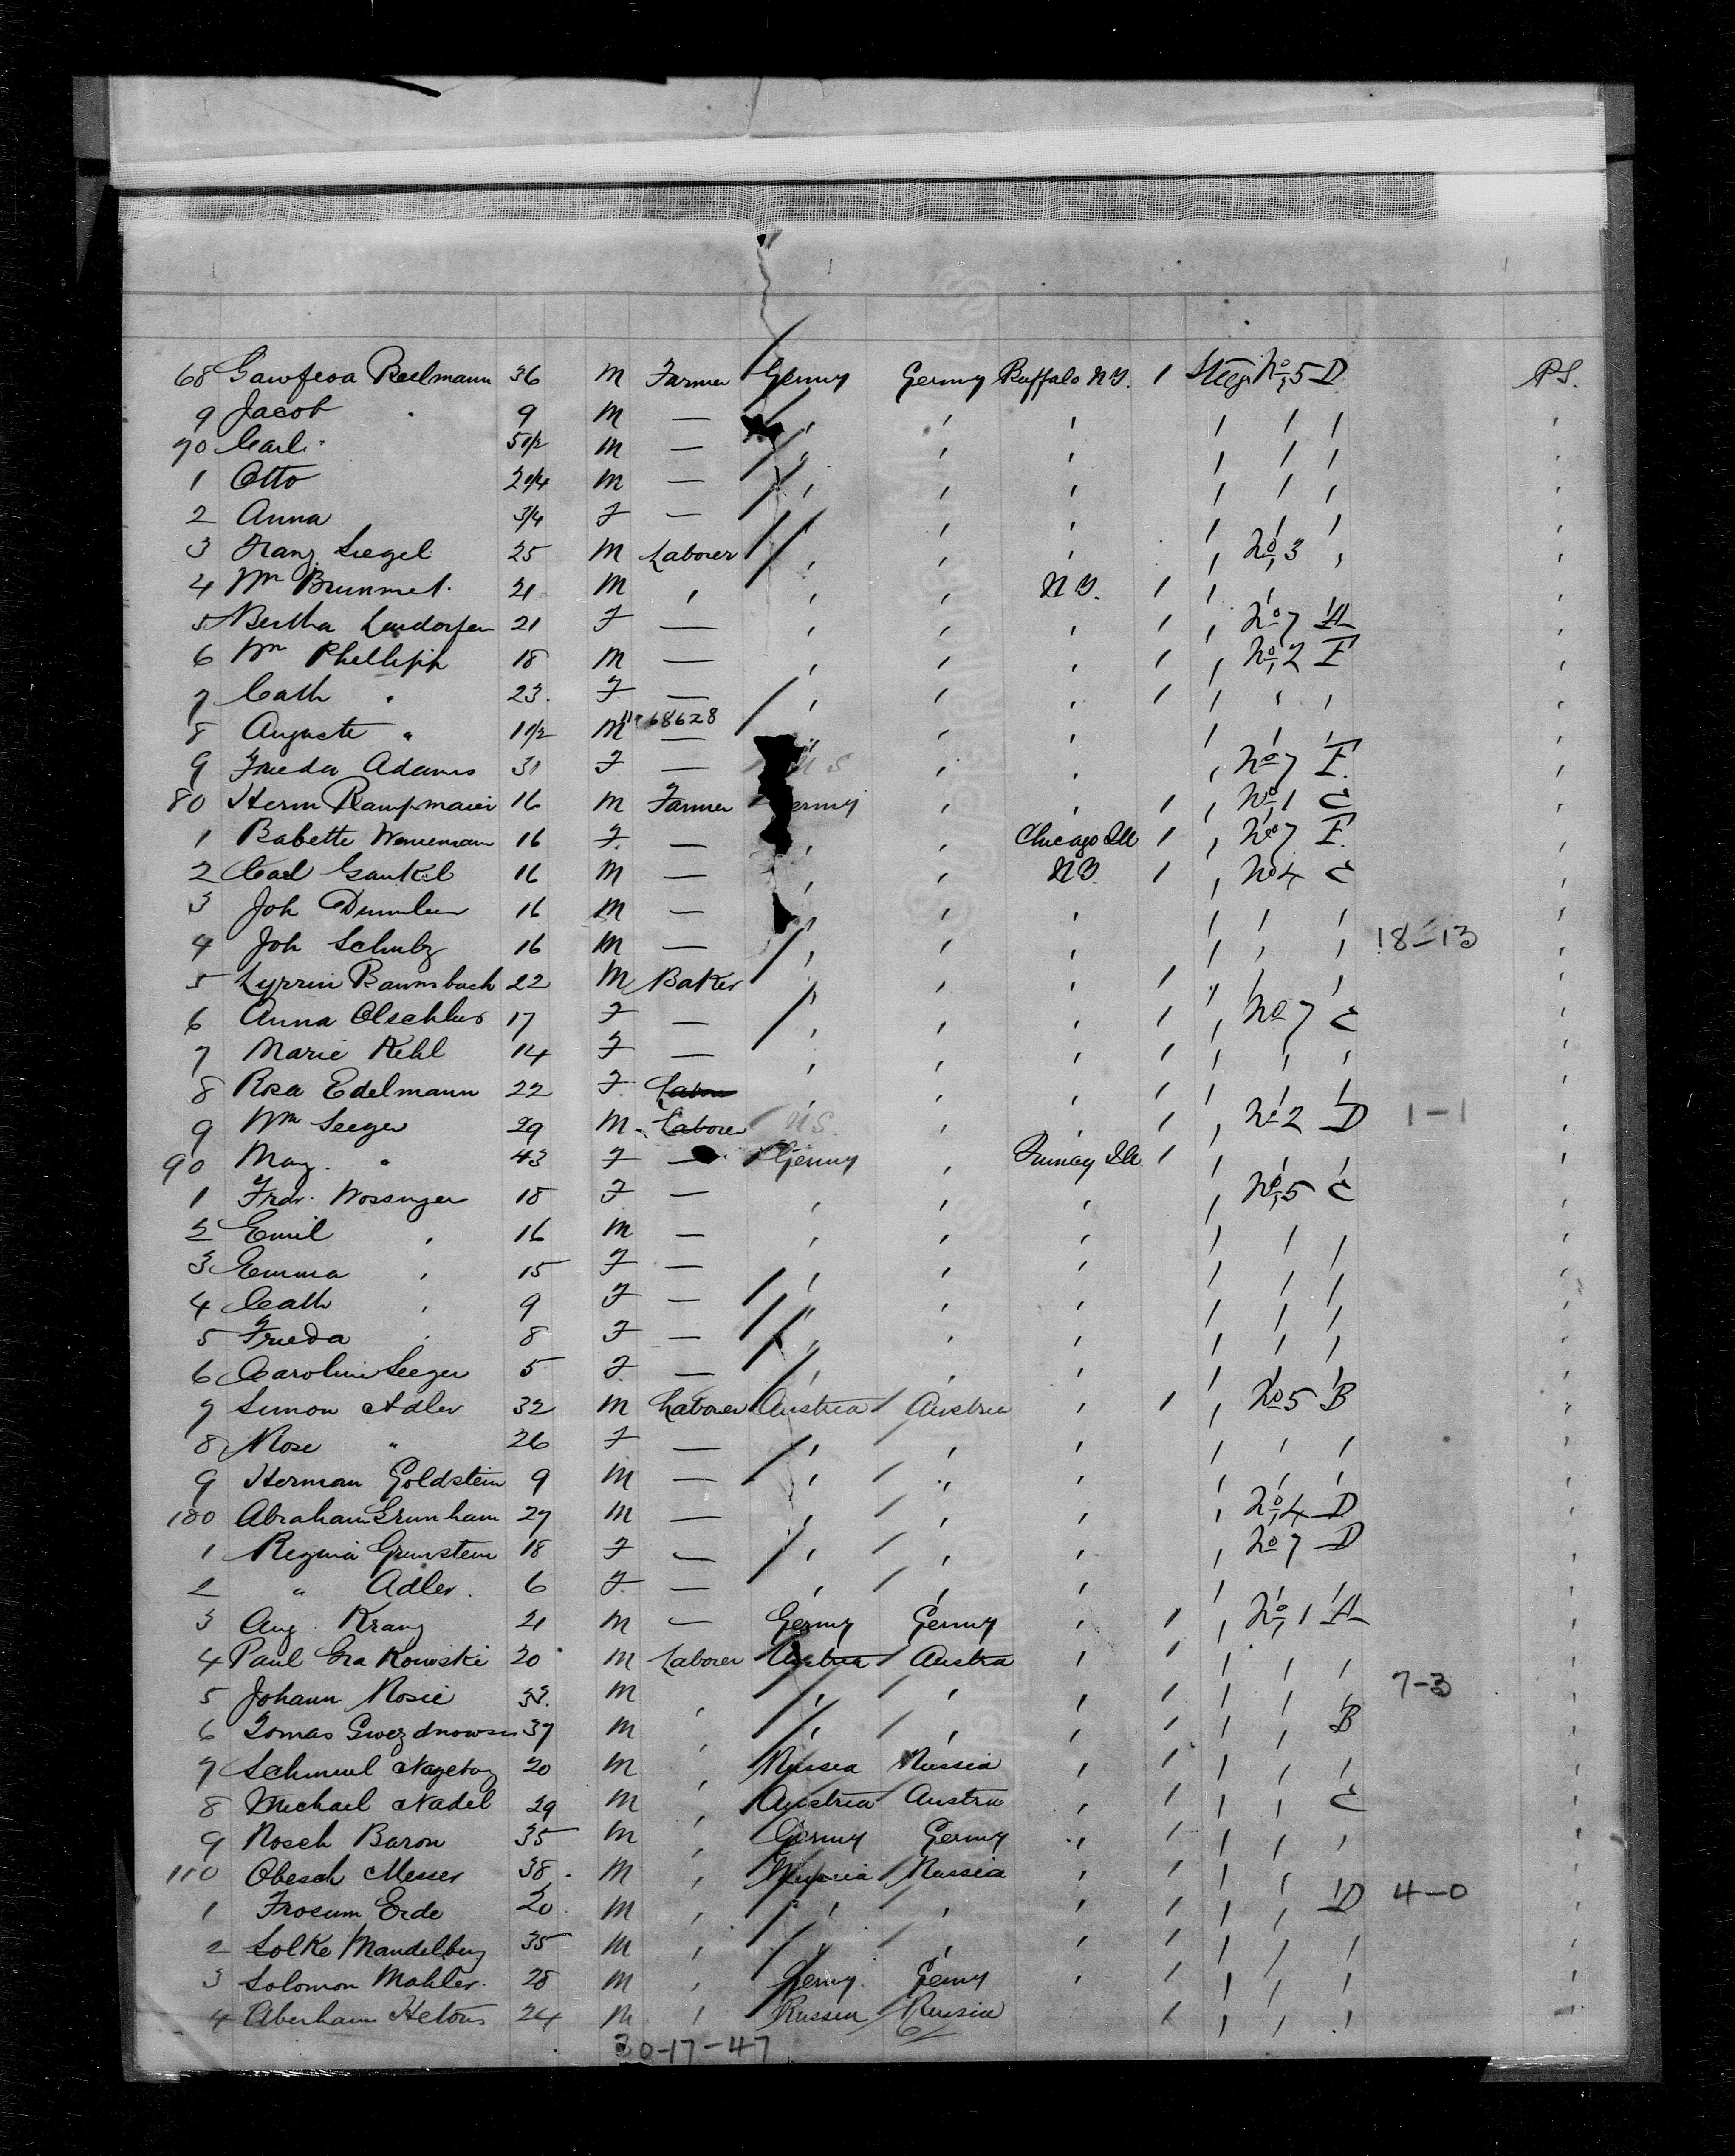 68 Gawfeva Beelmann 36 M Farmer Germy Germy Buffalo N.Y. 1 Steeg No 5 D P.S.
9 Jacob " 9 M — " " " " " " "
70 Carl " 5 1/2 M — " " " " " " "
1 Otto 2 1/4 M — " " " " " " "
2 Anna 3/4 F — " " " " " "
3 Franz Siegel 25 M Laborer " " " " No 3 " "
4 Wm Brummet 21 M " " " N.Y. 1 " " " "
5 Bertha 21 F — " " " 1 " No 7 A "
6 Wm Phellipp 18 M — " " " 1 " No 2 F "
7 Cath " 23 F — " " " 1 " " " "
8 Auguste " 1 1/2 M 68628 — " " " " " "
9 Frieda Adams 31 F — U S " " " No 7 F "
80 Herm Kampmaier 16 M Farmer Germy " " 1 " No 1 C "
1 Babette 16 F — " " Chicago Ill 1 " No 7 F "
2 Carl Gaukel 16 M — " " N.Y. 1 " No 4 C "
3 Joh 16 M — " " " " " " "
4 Joh Schulz 16 M — " " " " " " 18-13 "
5 Baumbach 22 M Baker " " " 1 " " " "
6 Anna 17 F — " " " 1 " No 7 C "
7 Marie Kehl 14 F — " " " 1 " " " "
8 Rosa Edelmann 22 F Labor " " " 1 " " " "
9 Wm Seeger 29 M Laborer U S. " " 1 " No 2 D 1-1 "
90 " 43 F — Germy " Ill 1 " " " "
1 Wossnger 18 F — " " " " No 5 C "
2 Emil " 16 M — " " " " " " "
3 Emma " 15 F — " " " " " " "
4 Cath " 9 F — " " " " " " "
5 Frieda " 8 F — " " " " " " "
6 Caroline Seeger 5 F — " " " " " "
7 Simon Adler 32 M Laborer Austria Austria " 1 " No 5 B "
8 Rose " 26 F — " " " " " " "
9 Herman Goldstein 9 M — " " " " " " "
100 Abraham Grunham 27 M — " " " " No 4 D "
1 Regina Grunstein 18 F — " " " " No 7 D "
2 " Adler 6 F — " " " " " " "
3 Aug. Kranz 21 M — Germy Germy " 1 " No 1 A "
4 Paul 20 M Laborer Austria Austra " 1 " " " "
5 Johann Rosie 33 M " " " " 1 " " " 7-3 "
6 Tomas 37 M " " " " 1 " " B "
7 20 M " Russia Russia " 1 " " " "
8 Michael Nadel 29 M " Austria Austra " 1 " " C "
9 Rosch Baron 35 M " Germy Germy " 1 " " " "
110 Obesch Messer 38 M " Russia Russia " 1 " " " "
1 Erde 20 M " " " " 1 " " D 4-0 "
2 Solke Mandelberg 35 M " " " " 1 " " " "
3 Solomon Mahler 28 M " Germy Germy " 1 " " " "
4 Aberham 24 M " Russia Russia 1 " " " "
30-17-47